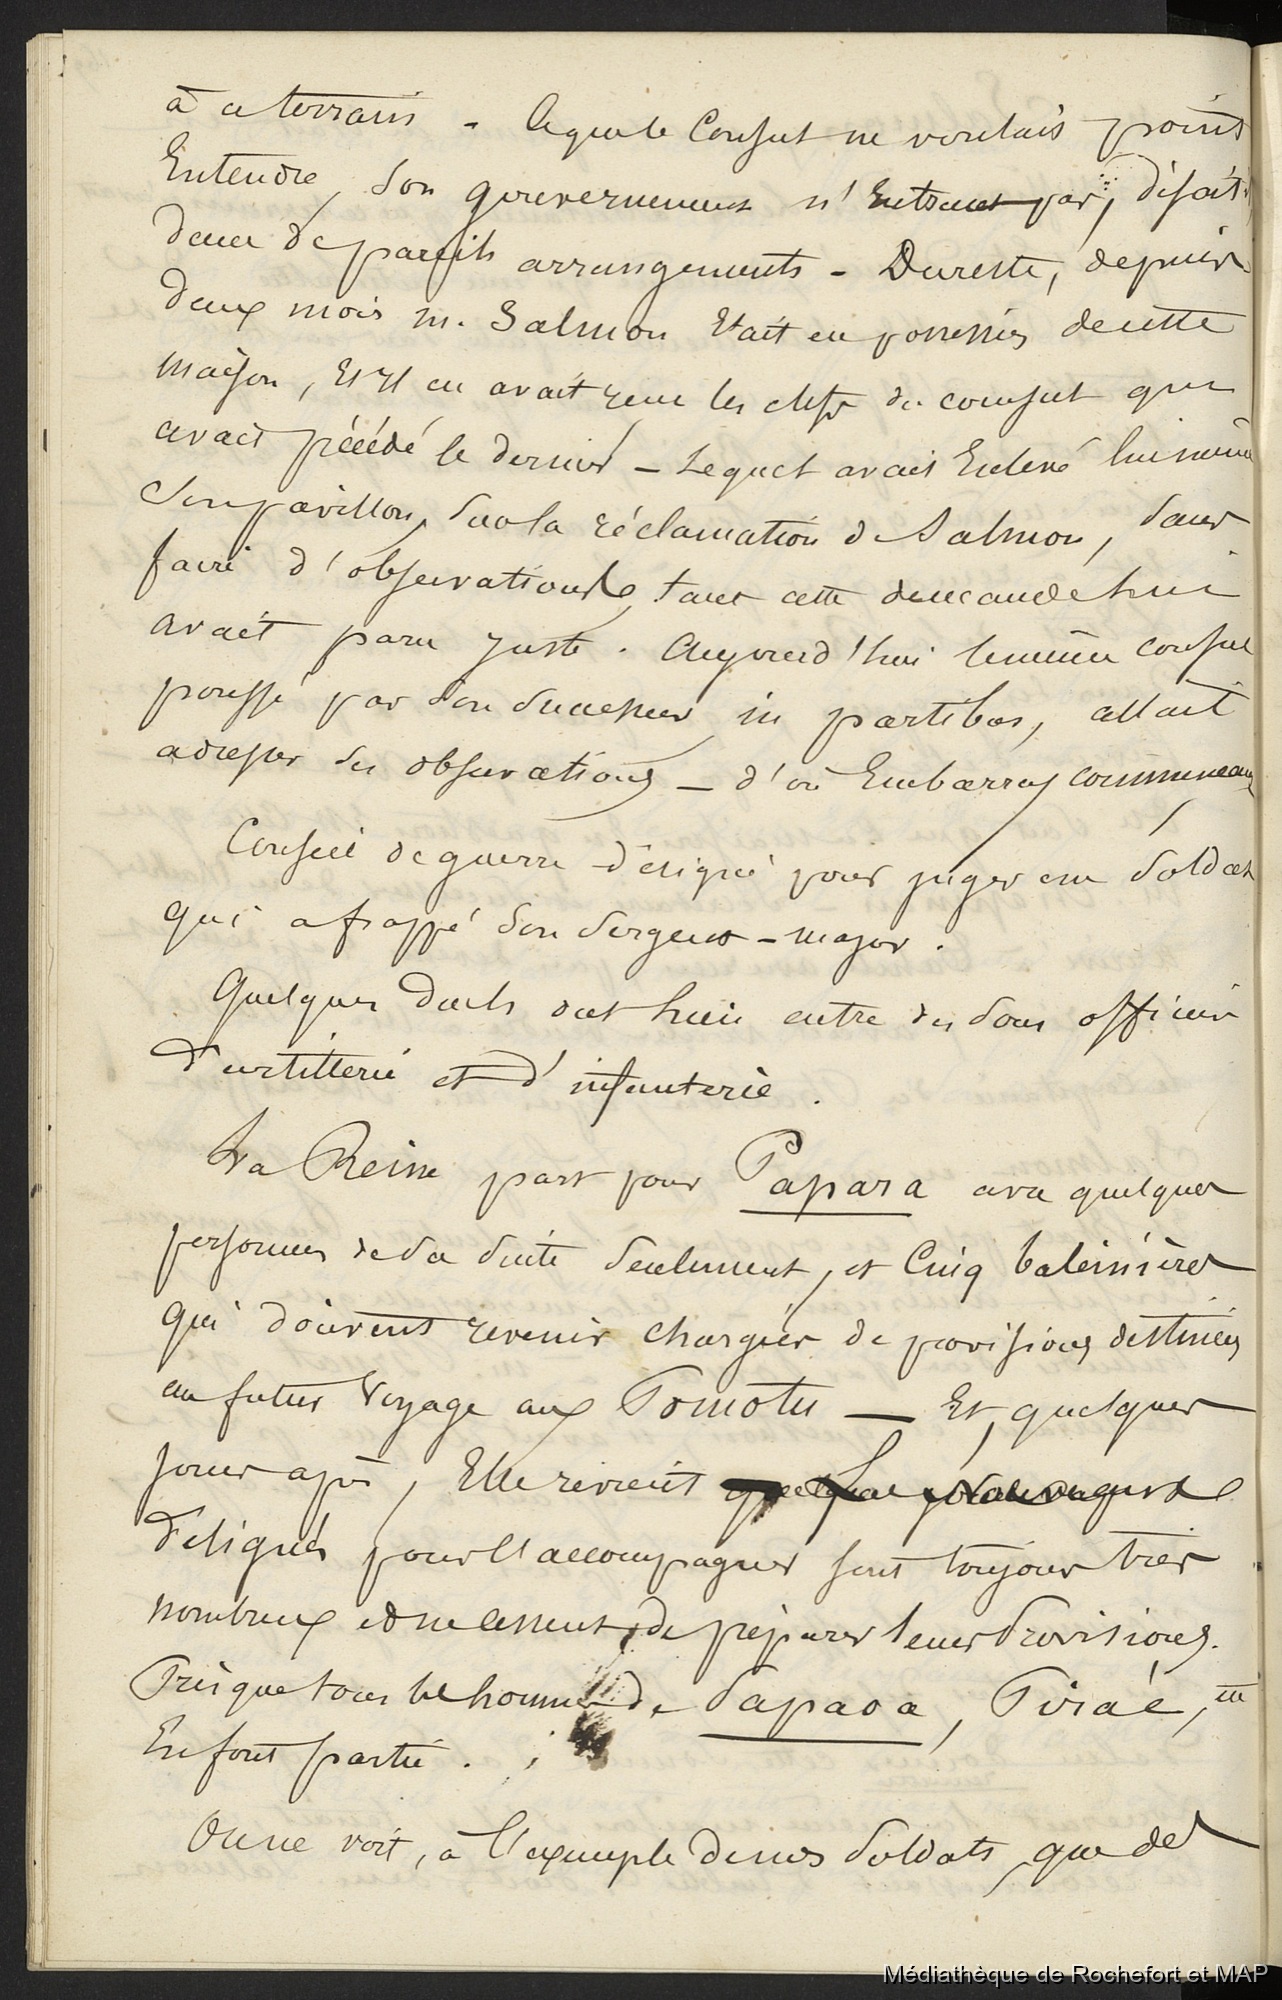 à ce terrain - Ce que le Consul ne voulait point
Entendre, son gouvernement n'Entrant pas, disait-il,
dans de pareils arrangements - Dureste, depuis
deux mois M. Salmon Etait en possession de cette
maison, Et il en avait reçu les clefs du consul qui
avait précédé le dernier - Lequel avait Enlevé lui même
son pavillon, sur la réclamation de Salmon, sans
faire d'observations, tant cette demande lui
avait paru juste. Aujourd'hui le même consul
poussé par son successeur in partibus, allait
adresser des observations - d'où Embarras commencant
Conseil de guerre désigné pour juger un soldat
qui a frappé son sergent-major.
Quelques duels ont lieu entre des sous officiers
d'artillerie et d'infanterie.
La Reine part pour Papara avec quelques
personnes de sa suite seulement, et Cinq baleinières
qui doivent revenir chargées de provisions destinées
au futur voyage aux Pomotu — Et, quelques
jours après, Elle revient Les
désignés pour l'accompagner sont toujours très
nombreux et ne cessent de préparer leurs Provisions.
Presque tous les hommes de Papaoa, Pirae, en
En font partie.
On ne voit, à l'exemple de nos soldats, que des
Médiathèque de Rochefort et MAP